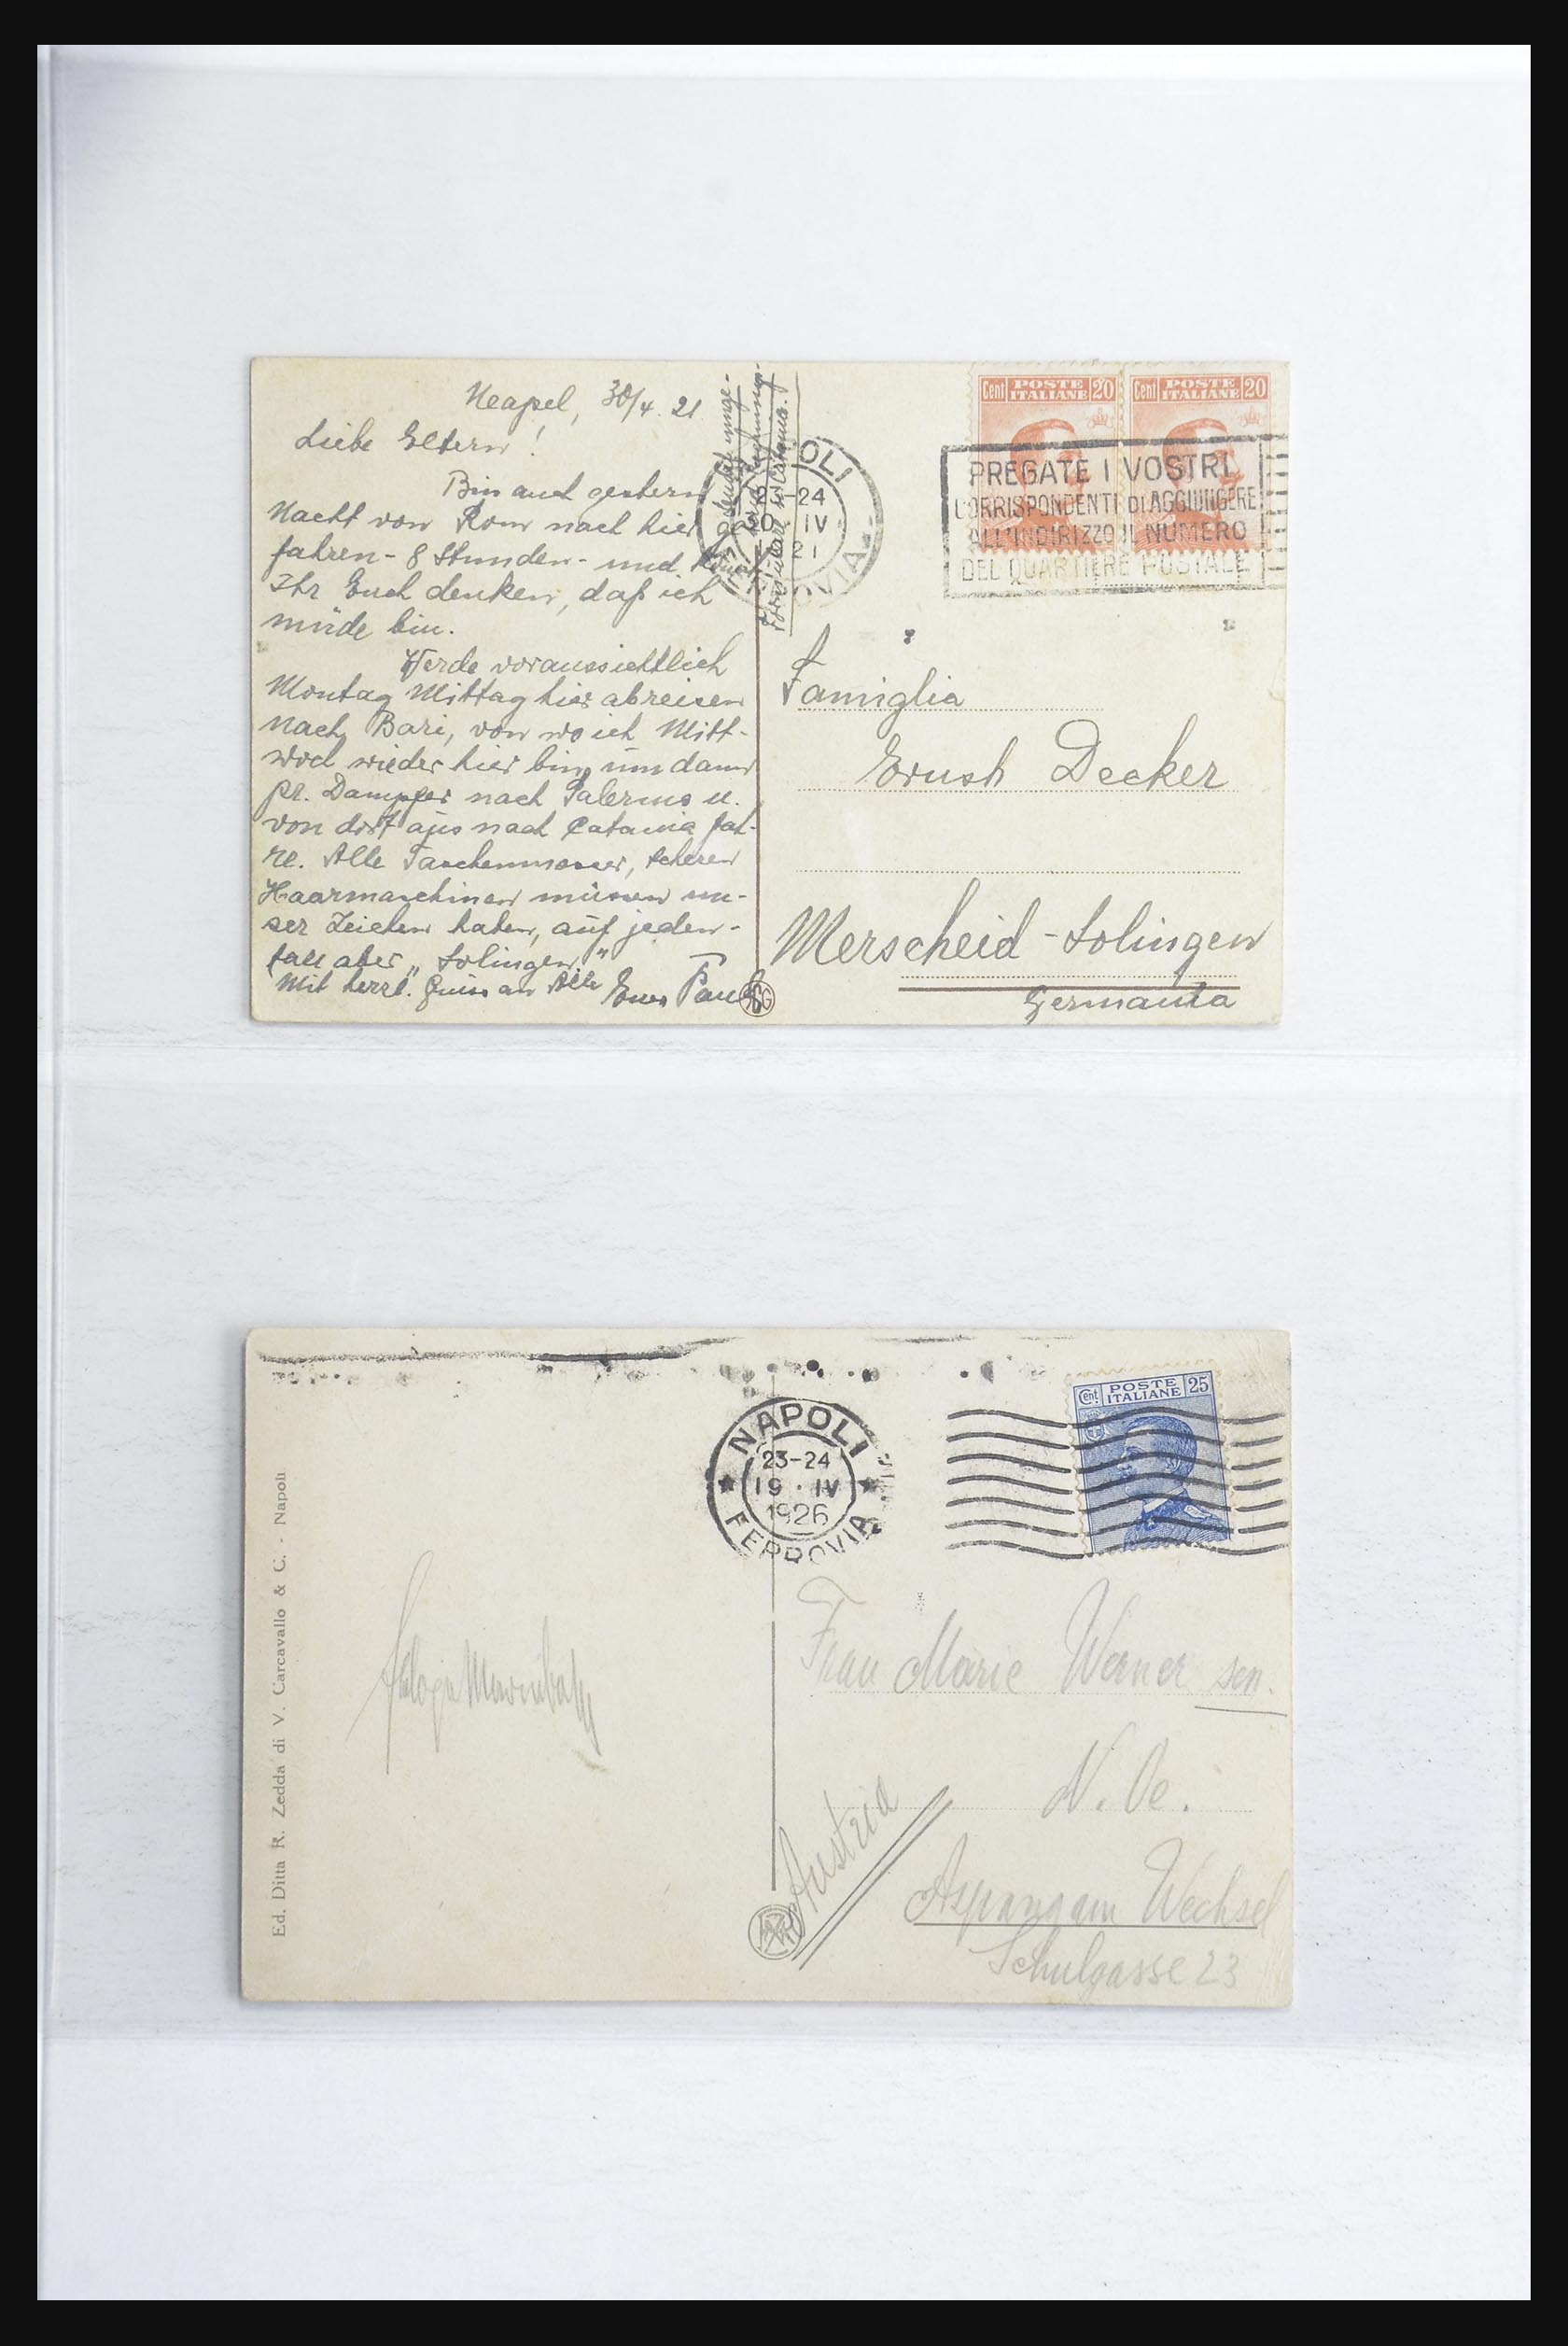 Neapel, 30/4. 21
Liebe Eltern!
Bin auch gestern
Nacht von Rom nach hier ge
fahren - 8 Stunden - und könnt
Ihr Euch denken, daß ich
müde bin.
Werde voraussichtlich
Montag Mittag hier abreisen
nach Bari, von wo ich Mitt-
woch wieder hier bin, um dann
pr. Dampfer nach Palermo u.
von dort aus nach Catania fah-
re. Alle Taschenmesser, Scheren
Haarmaschinen müssen un-
ser Zeichen haben, auf jeden-
fall aber "Solingen"
Mit herzl. Gruss an Alle Euer Paul
Catania.
OLI
-24
IV
21
OVIA
Cent POSTE ITALIANE 20
Cent POSTE ITALIANE 20
PREGATE I VOSTRI
CORRISPONDENTI DI AGGIUNGERE
ALL'INDIRIZZO IL NUMERO
DEL QUARTIERE POSTALE
Famiglia
Ernst Decker
Merscheid - Solingen
Germania
Ed. Ditta R. Zedda di V. Carcavallo & C. - Napoli
NAPOLI
23-24
19 · IV
1926
FERROVIA
Cent POSTE ITALIANE 25
Frau Marie Werner sen.
N. Oe.
Austria
Aspang am Wechsel
Schulgasse 23